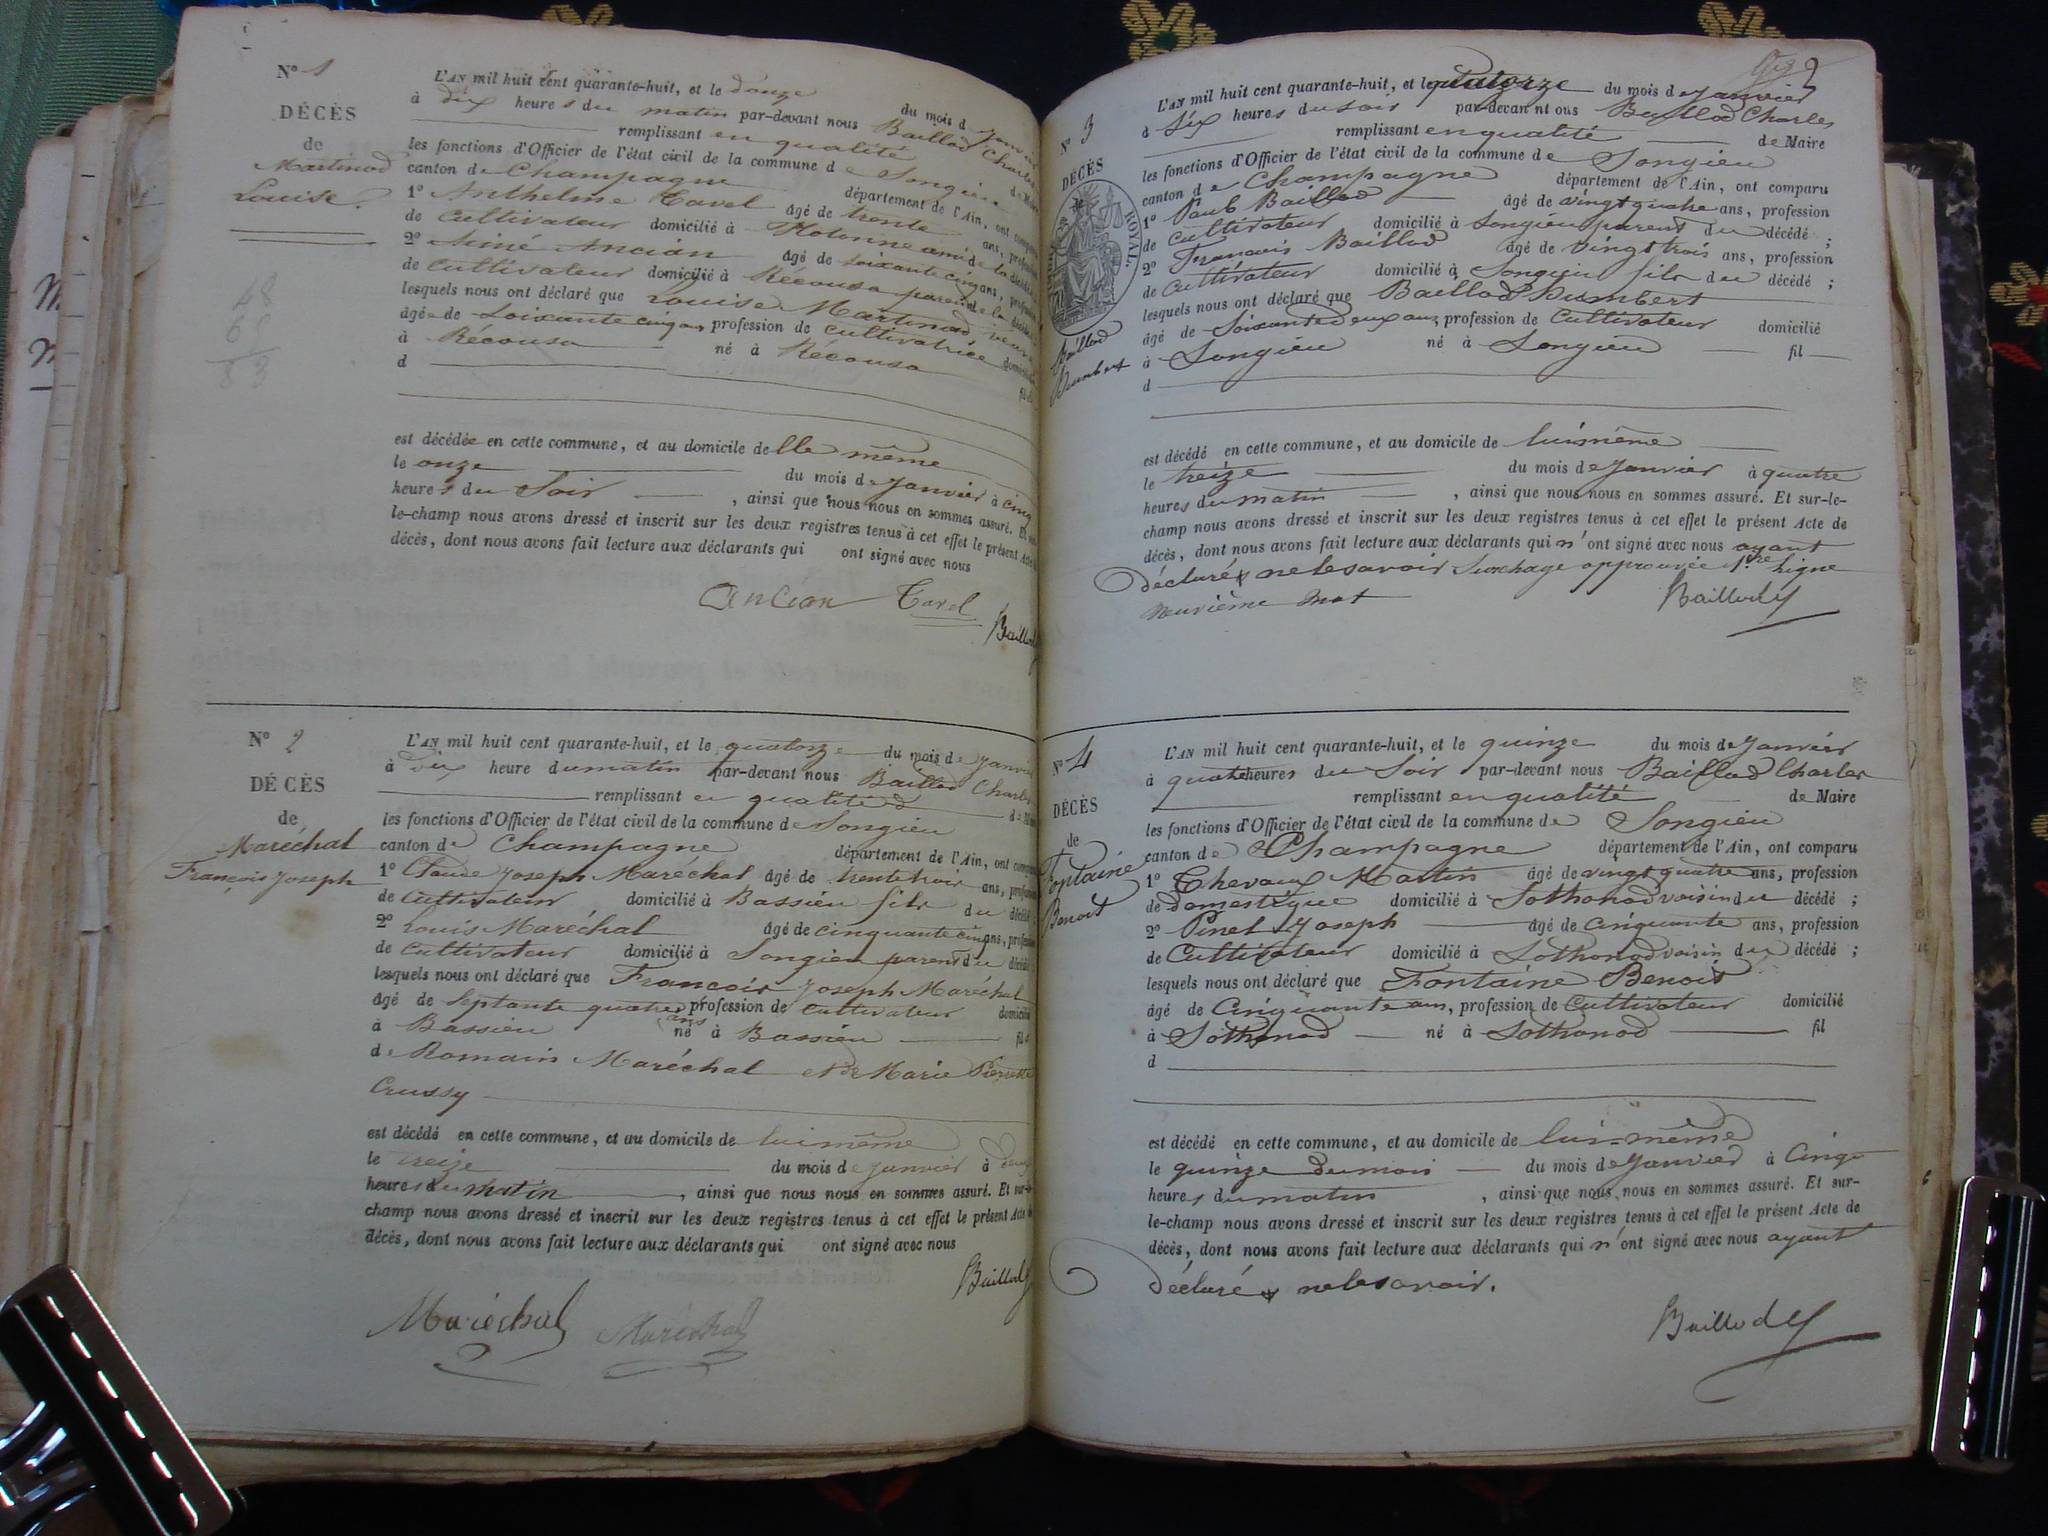 N° 1
DÉCÈS
de
Martinod
Louise.
L'AN mil huit cent quarante-huit, et le douze du mois de janvier
à dix heures du matin par-devant nous Baillod Charles
remplissant en qualité de Maire
les fonctions d'Officier de l'état civil de la commune de Songieu
canton de Champagne département de l'Ain, ont comparu
1° Anthelme Tavel âgé de trente ans, profession
de Cultivateur domicilié à Hotonne ami de la décédée
2° Aimé Ancian âgé de soixante cinq ans, profession
de Cultivateur domicilié à Récousa parent de la décédée
lesquels nous ont déclaré que Louise Martinod veuve
âgée de Soixante cinq ans profession de Cultivatrice domiciliée
à Récousa né à Récousa fil
d
est décédée en cette commune, et au domicile de lle même
le onze du mois de Janvier à cinq
heures du Soir , ainsi que nous nous en sommes assuré. Et sur-
le-champ nous avons dressé et inscrit sur les deux registres tenus à cet effet le présent Acte de
décès, dont nous avons fait lecture aux déclarants qui ont signé avec nous
Ancian Tavel
Baillod
N° 2
DÉCÈS
de
Maréchal
François Joseph
L'AN mil huit cent quarante-huit, et le quatorze du mois de Janvier
à Dix heure du matin par-devant nous Baillod Charles
remplissant en qualité d de Maire
les fonctions d'Officier de l'état civil de la commune de Songieu
canton de Champagne département de l'Ain, ont comparu
1° Claude Joseph Maréchal âgé de trente trois ans, profession
de Cultivateur domicilié à Bassieu fils du décédé
2° Louis Maréchal âgé de cinquante cinq ans, profession
de Cultivateur domicilié à Songieu parent du décédé
lesquels nous ont déclaré que François Joseph Maréchal
âgé de Septante quatre ans profession de Cultivateur domicilié
à Bassieu né à Bassieu fils
de Romain Maréchal et de Marie Pierrette
Crussy
est décédé en cette commune, et au domicile de lui même
le treize du mois de Janvier à deux
heures du matin , ainsi que nous nous en sommes assuré. Et sur-le-
champ nous avons dressé et inscrit sur les deux registres tenus à cet effet le présent Acte de
décès, dont nous avons fait lecture aux déclarants qui ont signé avec nous
Baillod
Maréchal Maréchal
N° 3
DÉCÈS
de
ROYAL.
Baillod
Humbert
L'AN mil huit cent quarante-huit, et le quatorze du mois de Janvier
à Six heures du soir par-devant nous Baillod Charles
remplissant en qualité de Maire
les fonctions d'Officier de l'état civil de la commune de Songieu
canton de Champagne département de l'Ain, ont comparu
1° Paul Baillod âgé de vingt quatre ans, profession
de Cultivateur domicilié à Songieu parent du décédé ;
2° François Baillod âgé de vingt trois ans, profession
de Cultivateur domicilié à Songieu fils du décédé ;
lesquels nous ont déclaré que Baillod Humbert
âgé de Soixante deux ans, profession de Cultivateur domicilié
à Songieu né à Songieu fil
d
est décédé en cette commune, et au domicile de lui même
le treize du mois de Janvier à quatre
heures du matin , ainsi que nous nous en sommes assuré. Et sur-le-
champ nous avons dressé et inscrit sur les deux registres tenus à cet effet le présent Acte de
décès, dont nous avons fait lecture aux déclarants qui n'ont signé avec nous ayant
déclaré ne le savoir Surchage approuvée 1re ligne
neuvième mot Baillod
N° 4
DÉCÈS
de
Fontaine
Benoit
L'AN mil huit cent quarante-huit, et le quinze du mois de Janvier
à quatre heures du Soir par-devant nous Baillod Charles
remplissant en qualité de Maire
les fonctions d'Officier de l'état civil de la commune de Songieu
canton de Champagne département de l'Ain, ont comparu
1° Chevaux Martin âgé de vingt quatre ans, profession
de domestique domicilié à Sothonod voisin du décédé ;
2° Pinet Joseph âgé de Cinquante ans, profession
de Cultivateur domicilié à Sothonod voisin du décédé ;
lesquels nous ont déclaré que Fontaine Benoit
âgé de Cinquante ans, profession de Cultivateur domicilié
à Sothonod né à Sothonod fil
d
est décédé en cette commune, et au domicile de lui-même
le quinze du mois du mois de Janvier à Cinq
heures du matin , ainsi que nous nous en sommes assuré. Et sur-
le-champ nous avons dressé et inscrit sur les deux registres tenus à cet effet le présent Acte de
décès, dont nous avons fait lecture aux déclarants qui n'ont signé avec nous ayant
déclaré ne le savoir.
Baillod